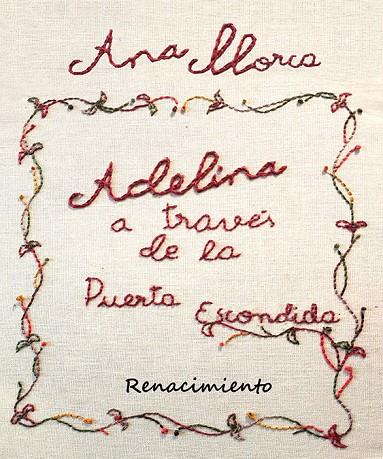 Ana Llorca
Adelina
a través
de la
Puerta Escondida
Renacimiento